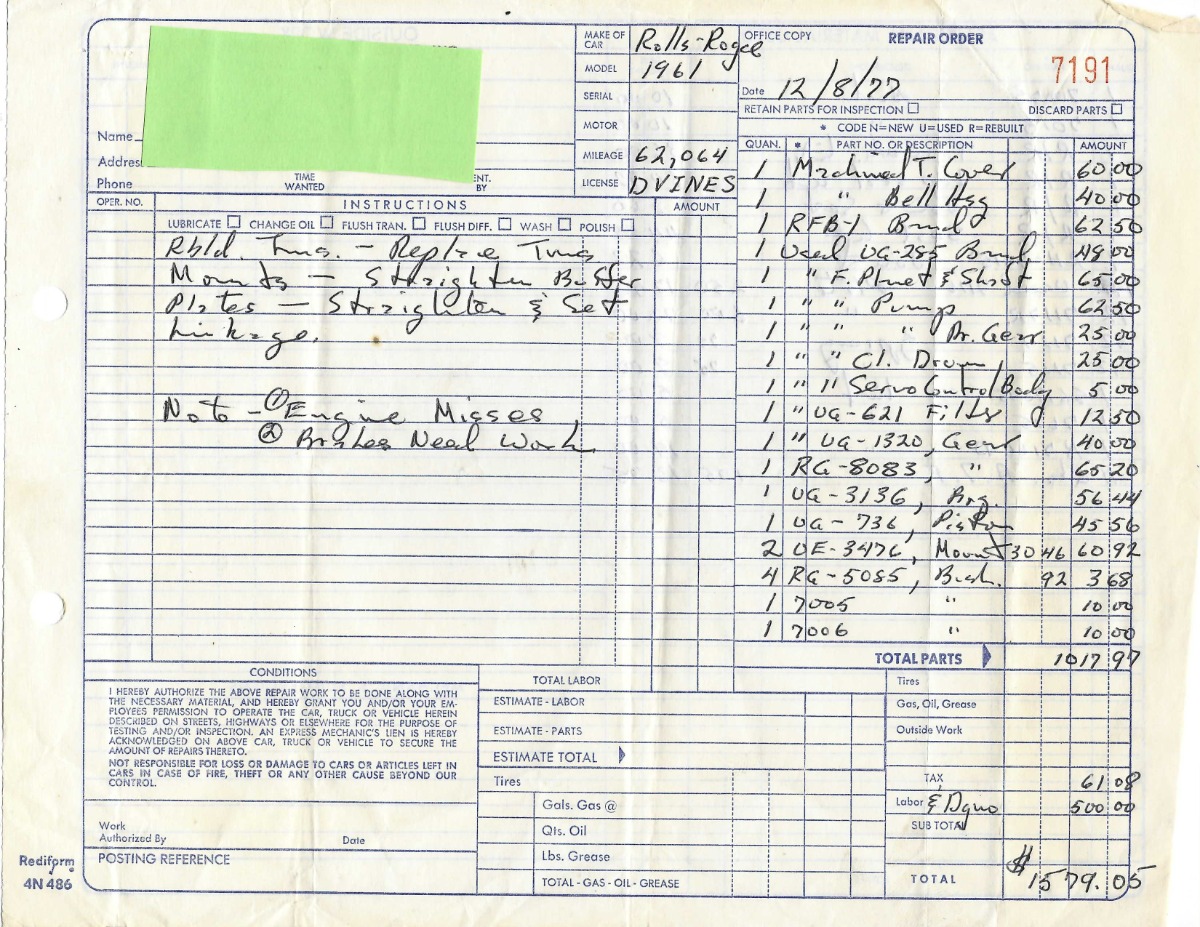 MAKE OF CAR Rolls-Royce
MODEL 1961
SERIAL
MOTOR
MILEAGE 62,064
LICENSE DVINES
Name
Address
Phone
TIME WANTED
BY
OFFICE COPY REPAIR ORDER
7191
Date 12/8/77
RETAIN PARTS FOR INSPECTION ☐ DISCARD PARTS ☐
* CODE N=NEW U=USED R=REBUILT
OPER. NO. INSTRUCTIONS AMOUNT
LUBRICATE ☐ CHANGE OIL ☐ FLUSH TRAN. ☐ FLUSH DIFF. ☐ WASH ☐ POLISH ☐
Rbld. Trns. - Replace Trns
Mounts - Straighten Baffer
Plates - Straighten & Set
Linkage.
Note - ① Engine Misses
② Brakes Need Work
QUAN. * PART NO. OR DESCRIPTION AMOUNT
1 Machined T. Cover 60 00
1 " Bell Hsg 40 00
1 RFB-1 Band 62 50
1 Used UG-285 Band 48 00
1 " F. Planet & Shaft 65 00
1 " " Pump 62 50
1 " " " Dr. Gear 25 00
1 " " Cl. Drum 25 00
1 " " Servo Control Body 5 00
1 " UG-621 Filter 12 50
1 " UG-1320, Gear 40 00
1 RG-8083, " 65 20
1 UG-3136, Brg. 56 44
1 UG-736, Piston 45 56
2 UE-3476, Mount 30 46 60 92
4 RG-5085, Bush. 92 3 68
1 7005 " 10 00
1 7006 " 10 00
TOTAL PARTS 1017 97
CONDITIONS
I HEREBY AUTHORIZE THE ABOVE REPAIR WORK TO BE DONE ALONG WITH
THE NECESSARY MATERIAL, AND HEREBY GRANT YOU AND/OR YOUR EM-
PLOYEES PERMISSION TO OPERATE THE CAR, TRUCK OR VEHICLE HEREIN
DESCRIBED ON STREETS, HIGHWAYS OR ELSEWHERE FOR THE PURPOSE OF
TESTING AND/OR INSPECTION. AN EXPRESS MECHANIC'S LIEN IS HEREBY
ACKNOWLEDGED ON ABOVE CAR, TRUCK OR VEHICLE TO SECURE THE
AMOUNT OF REPAIRS THERETO.
NOT RESPONSIBLE FOR LOSS OR DAMAGE TO CARS OR ARTICLES LEFT IN
CARS IN CASE OF FIRE, THEFT OR ANY OTHER CAUSE BEYOND OUR
CONTROL.
Work Authorized By Date
POSTING REFERENCE
Rediform
4N 486
TOTAL LABOR
ESTIMATE - LABOR
ESTIMATE - PARTS
ESTIMATE TOTAL
Tires
Gals. Gas @
Qts. Oil
Lbs. Grease
TOTAL - GAS - OIL - GREASE
Tires
Gas, Oil, Grease
Outside Work
TAX 61 08
Labor & Dyno 500 00
SUB TOTAL
TOTAL $1579.05